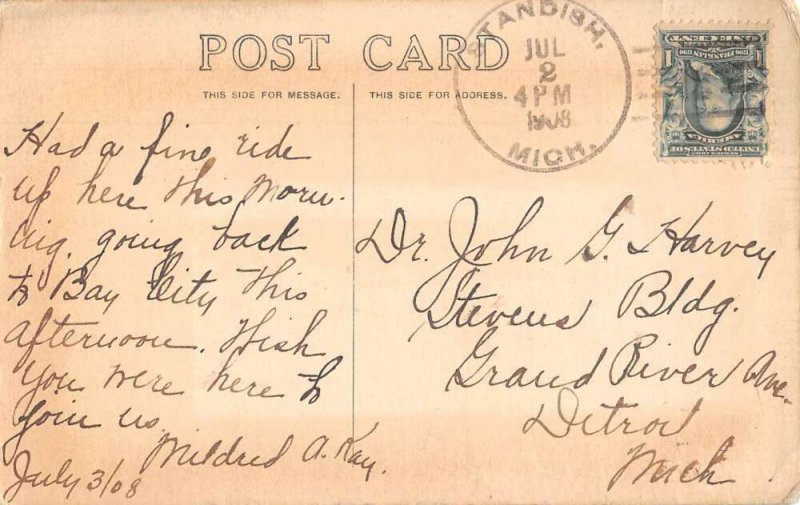 POST CARD
THIS SIDE FOR MESSAGE. THIS SIDE FOR ADDRESS.
STANDISH,
JUL
2
4 PM
1908
MICH.
ONE CENT
1 FRANKLIN 1
AMERICA
UNITED STATES OF
Had a fine ride
up here this morn-
ing. going back
to Bay City this
afternoon. Wish
you were here to
join us.
Mildred A. Kay.
July 3/08
Dr. John G. Harvey
Stevens Bldg.
Grand River Ave.
Detroit
Mich